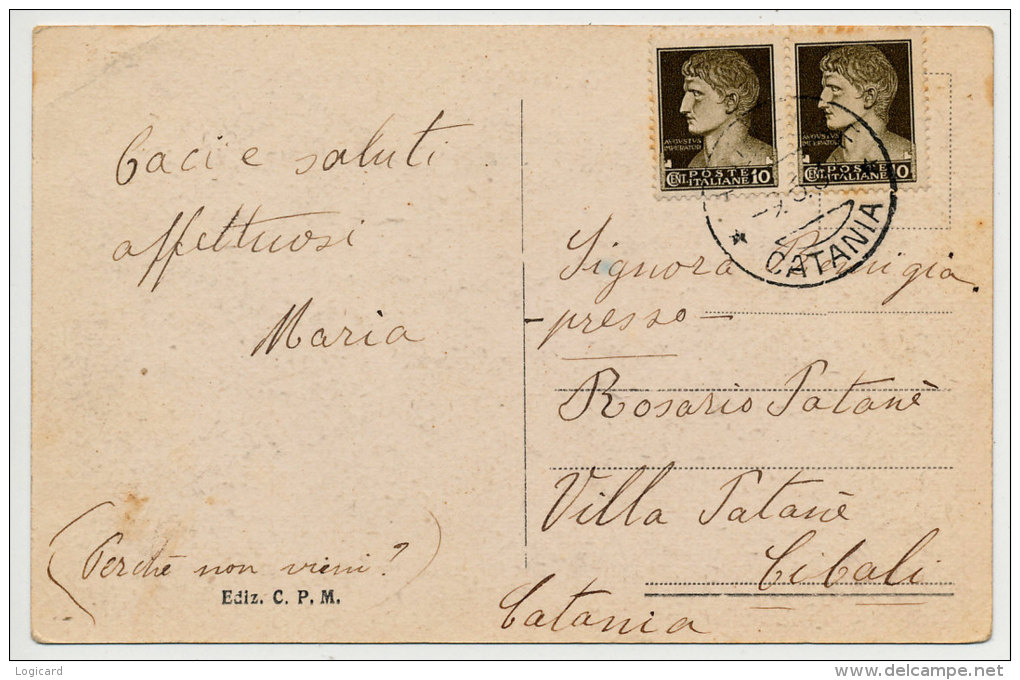 Baci e saluti
affettuosi
Maria
(Perchè non vieni?)
Ediz. C. P. M.
AVGVSTVS
IMPERATOR
CENT. POSTE ITALIANE 10
AVGVSTVS
IMPERATOR
CENT. POSTE ITALIANE 10
* CATANIA *
Signora Remigia
- presso -
Rosario Patanè
Villa Patanè
Cibali
Catania
Logicard
www.delcampe.net